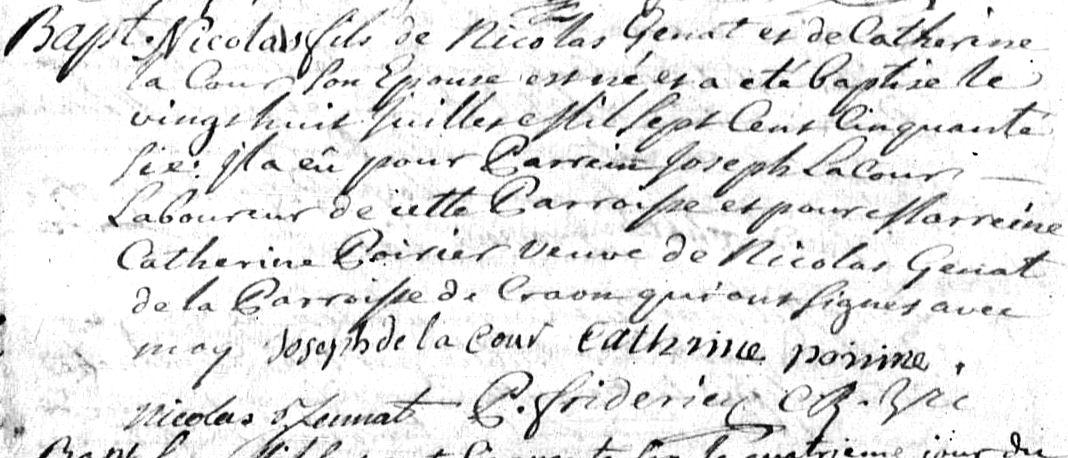 Bapt. Nicolas fils de Nicolas Genat et de Catherine
la Cour son Epouse est né et a eté baptisé le
vingt huit juillet Mil Sept Cent Cinquante
sie: Il a eû pour Parrein Joseph LaCour —
Laboureur de cette Parroisse et pour Marreine
Catherine Poirier veuve de Nicolas Genat
de la Parroisse de Craon qui ont signes avec
moy Joseph de la cour Cathrine poirine.
Nicolas Jennat P. friderici
Bapt quatrieme jour du